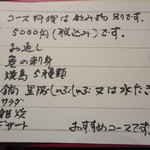 コース料理は飲み物別です。
5000円(税込み)です。
お通し
魚の刺身
焼鳥 5種類
鍋 黒豚しゃぶしゃぶ 又は 水だき
サラダ
雑炊
デザート
おすすめコースです。